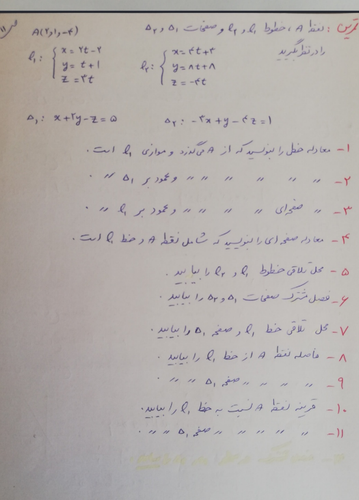 تمرین: نقطه A، خطوط l₁ و l₂ و صفحات Δ₁ و Δ₂ را در نظر بگیرید
A(2و1و-4)
l₁: { x = 2t-2
y = t+1
z = 3t
l₂: { x = 4t+3
y = 8t+8
z = -4t
Δ₁: x+2y-z=5   Δ₂: -2x+y-4z=1
1- معادله خطی را بنویسید که از A می‌گذرد و موازی l₁ است.
2- " " " " " " و عمود بر Δ₁ "
3- " صفحه‌ای " " " " و عمود بر l₁ "
4- معادله صفحه‌ای را بنویسید که شامل نقطه A و خط l₁ است.
5- محل تلاقی خطوط l₁ و l₂ را بیابید.
6- فصل مشترک صفحات Δ₁ و Δ₂ را بیابید.
7- محل تلاقی خط l₁ و صفحه Δ₁ را بیابید.
8- فاصله نقطه A از خط l₁ را بیابید.
9- " " " " صفحه Δ₁ " "
10- قرینه نقطه A نسبت به خط l₁ را بیابید.
11- " " " " " صفحه Δ₁ " "